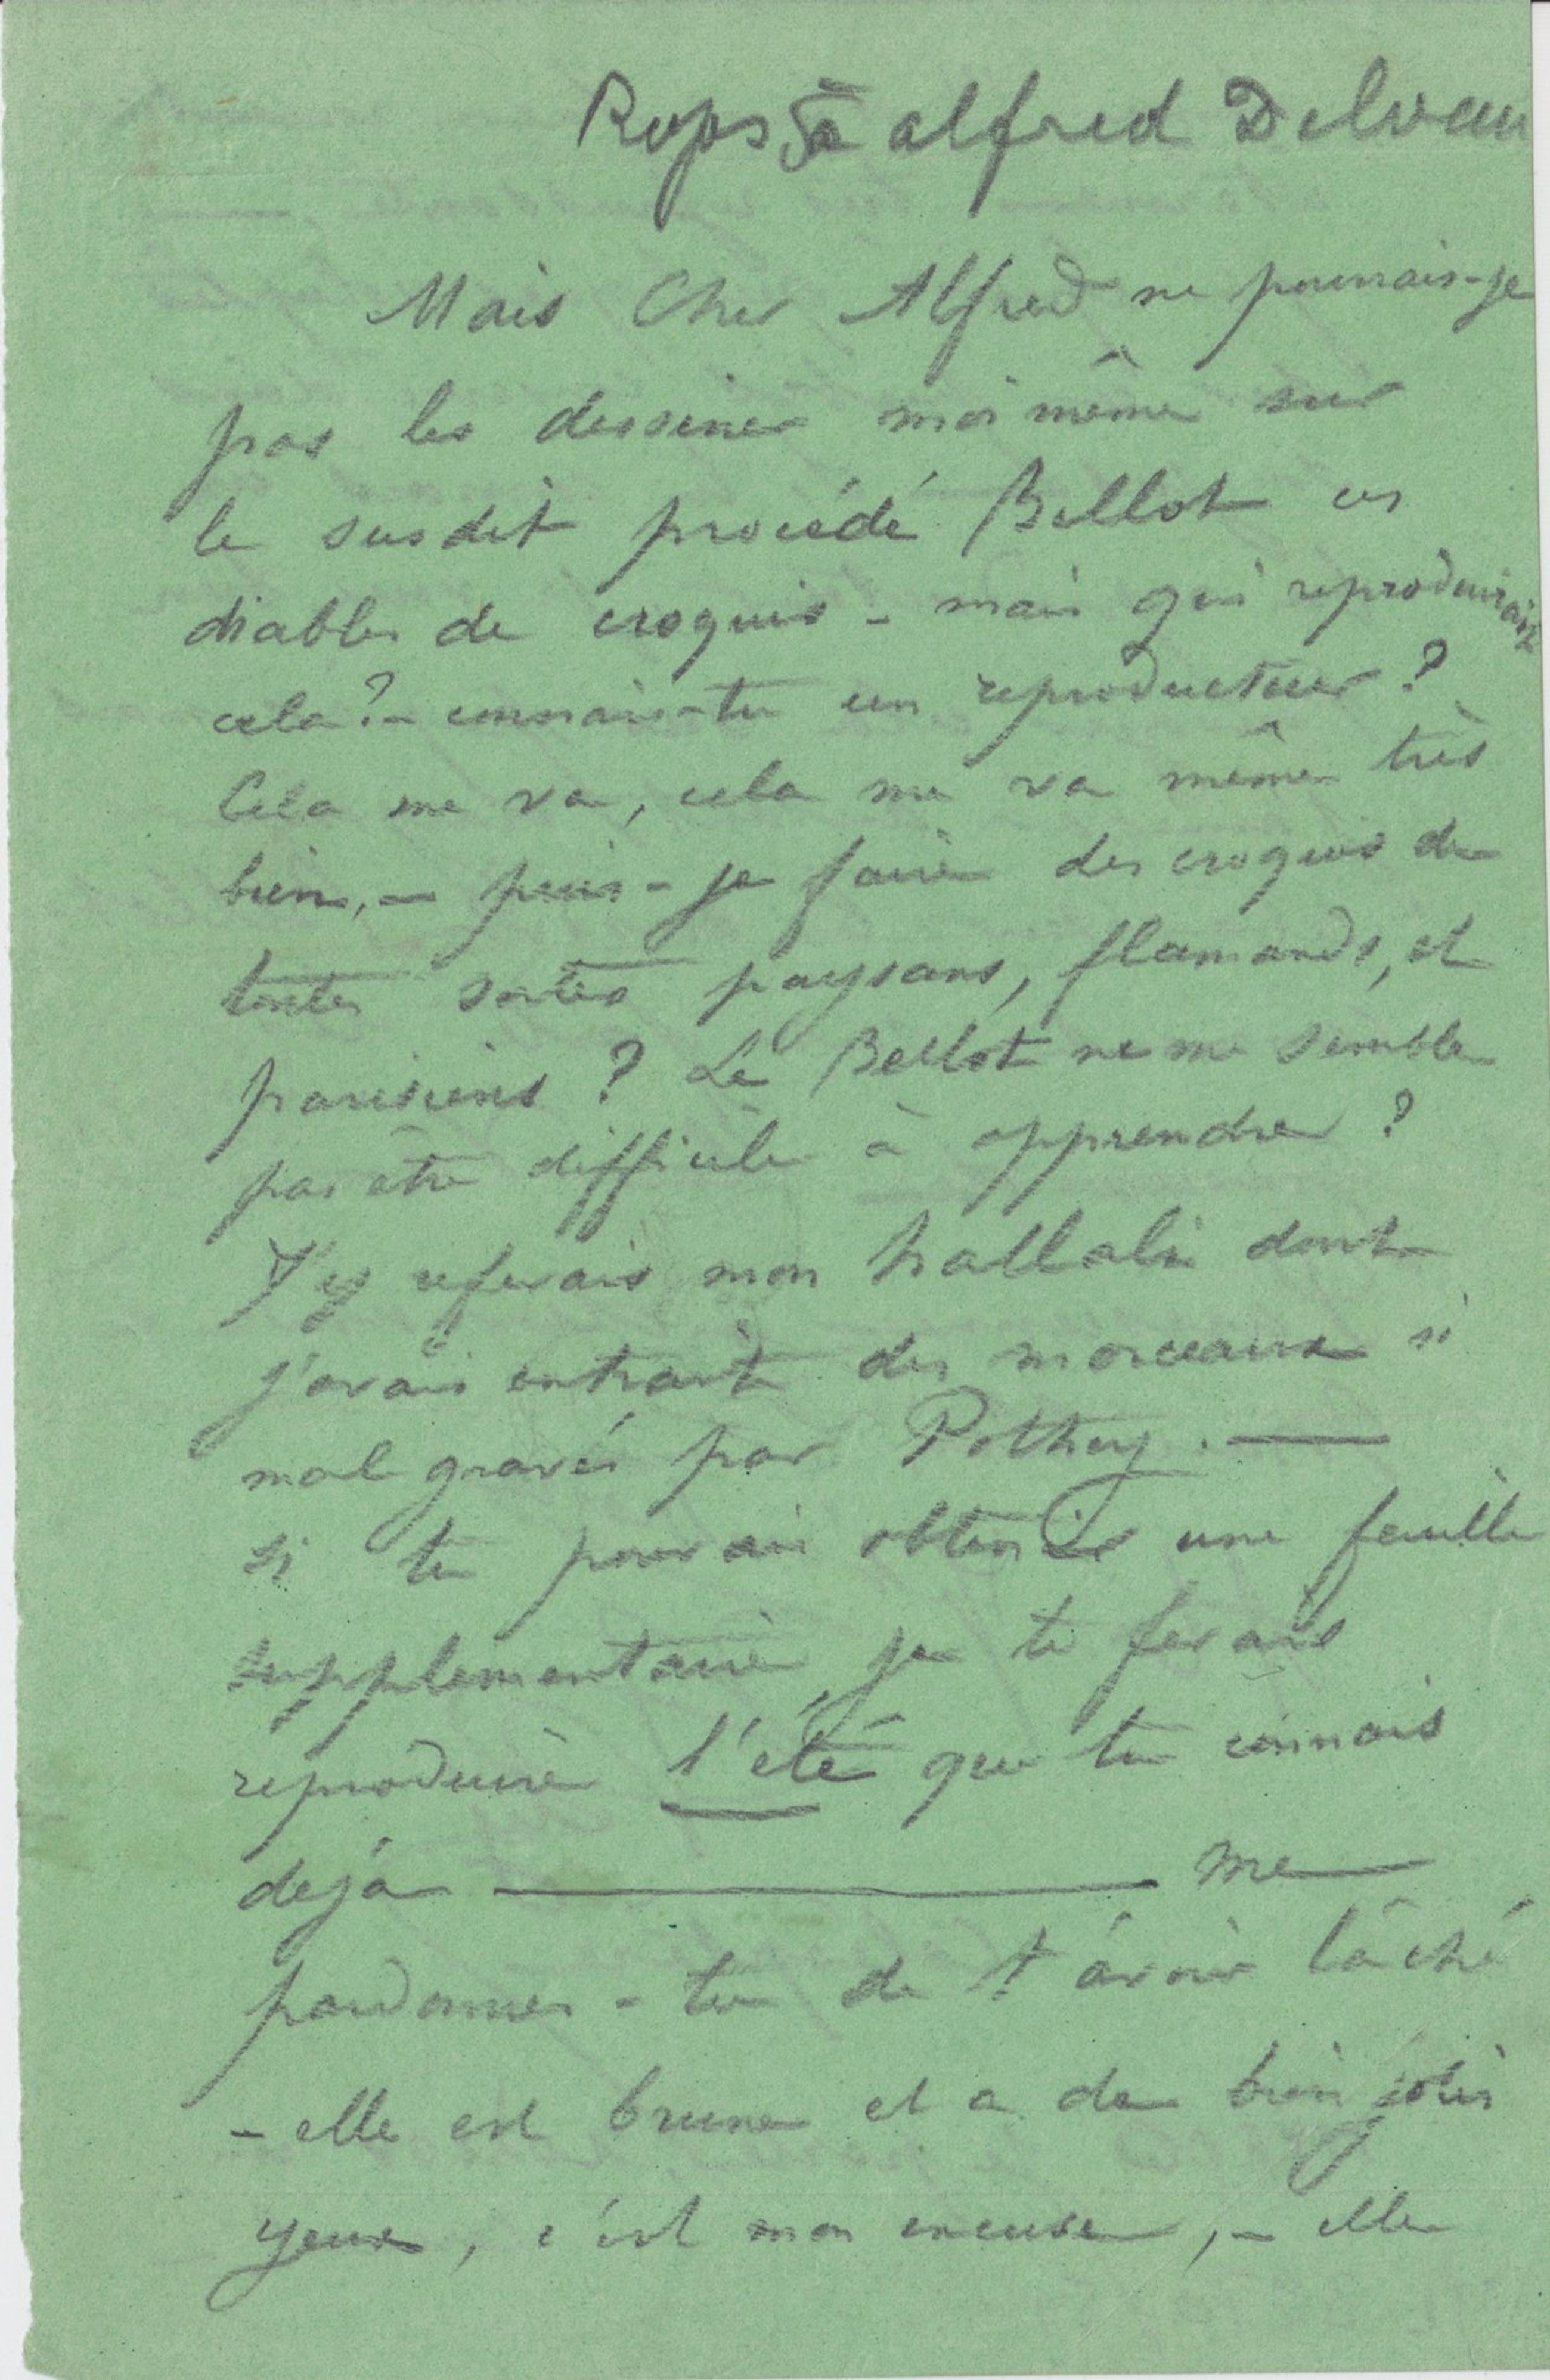 Rops à alfred Delvau
Mais Cher Alfred ne pourrais-je
pas les dessiner moi même sur
le susdit procédé Bellot ces
diables de croquis - mais qui reproduirait
cela? - connais-tu un reproducteur?
Cela me va, cela me va même très
bien, - puis-je faire des croquis de
toutes sortes paysans, flamands, et
parisiens? Le Bellot ne me semble
pas être difficile à apprendre?
J'y referais mon hallali dont
j'avais extrait des morceaux si
mal gravés par Pothey. —
si tu pouvais obtenir une feuille
supplementaire je te ferais
reproduire l'été que tu connais
dejà — me
pardonnes-tu de t'avoir lâché
- elle est brune et a de bien jolis
yeux, c'est mon excuse, - elle